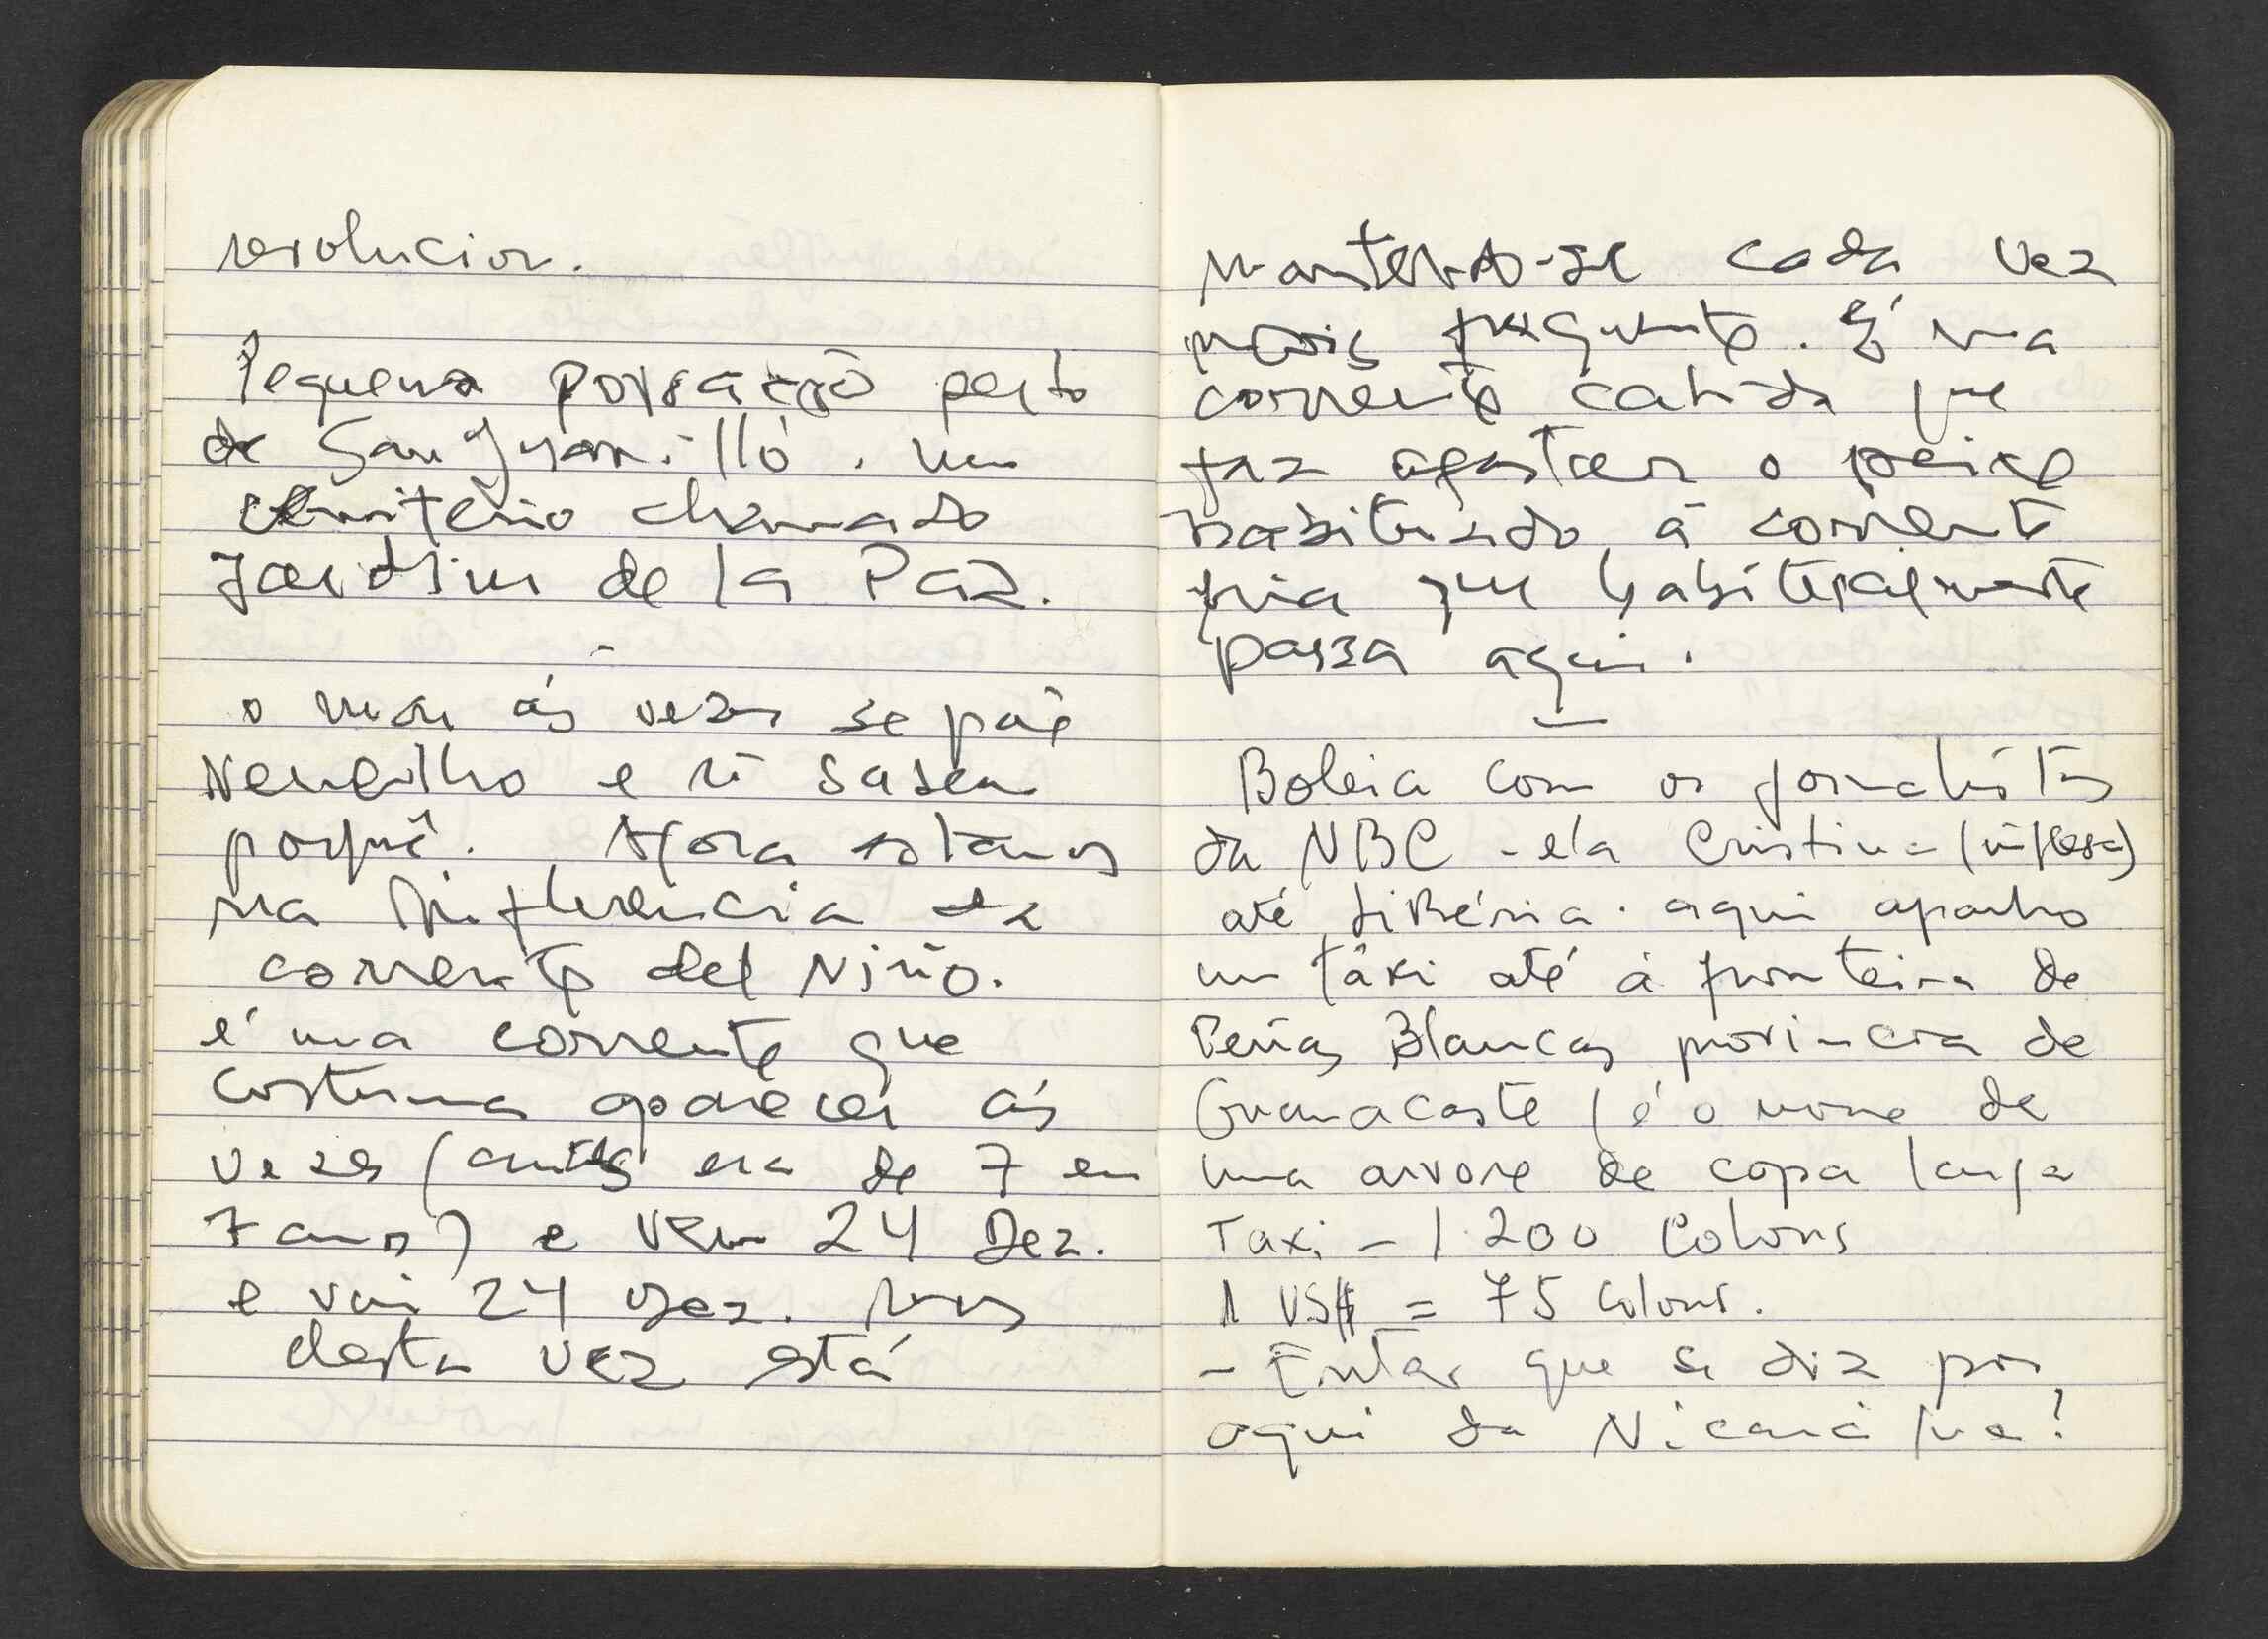 revolucion.
Pequena povoação perto
de San Juanillo. um
cemitério chamado
Jardim de la Paz.
-
o mar ás vezes se põe
Vermelho e só sabem
porquê. Agora estamos
na influencia da
corrente del Niño.
é uma corrente que
costuma aparecer ás
vezes (antes era de 7 em
7 anos) e vem 24 Dez.
e vai 24 Dez. Mas
desta vez está
mantendo-se cada vez
mais frequente. É uma
corrente calida que
faz afastar o peixe
habituado á corrente
fria que habitualmente
passa aqui.
-
Boleia com os jornalistas
da NBC - ela Cristina (inglesa)
até Libéria. aqui apanho
um táxi até á fronteira de
Peñas Blancas provincia de
Guanacaste (é o nome de
uma arvore de copa larga
Taxi - 1.200 Colons
1 US$ = 75 Colons.
- que se diz por
aqui da Nicarágua?